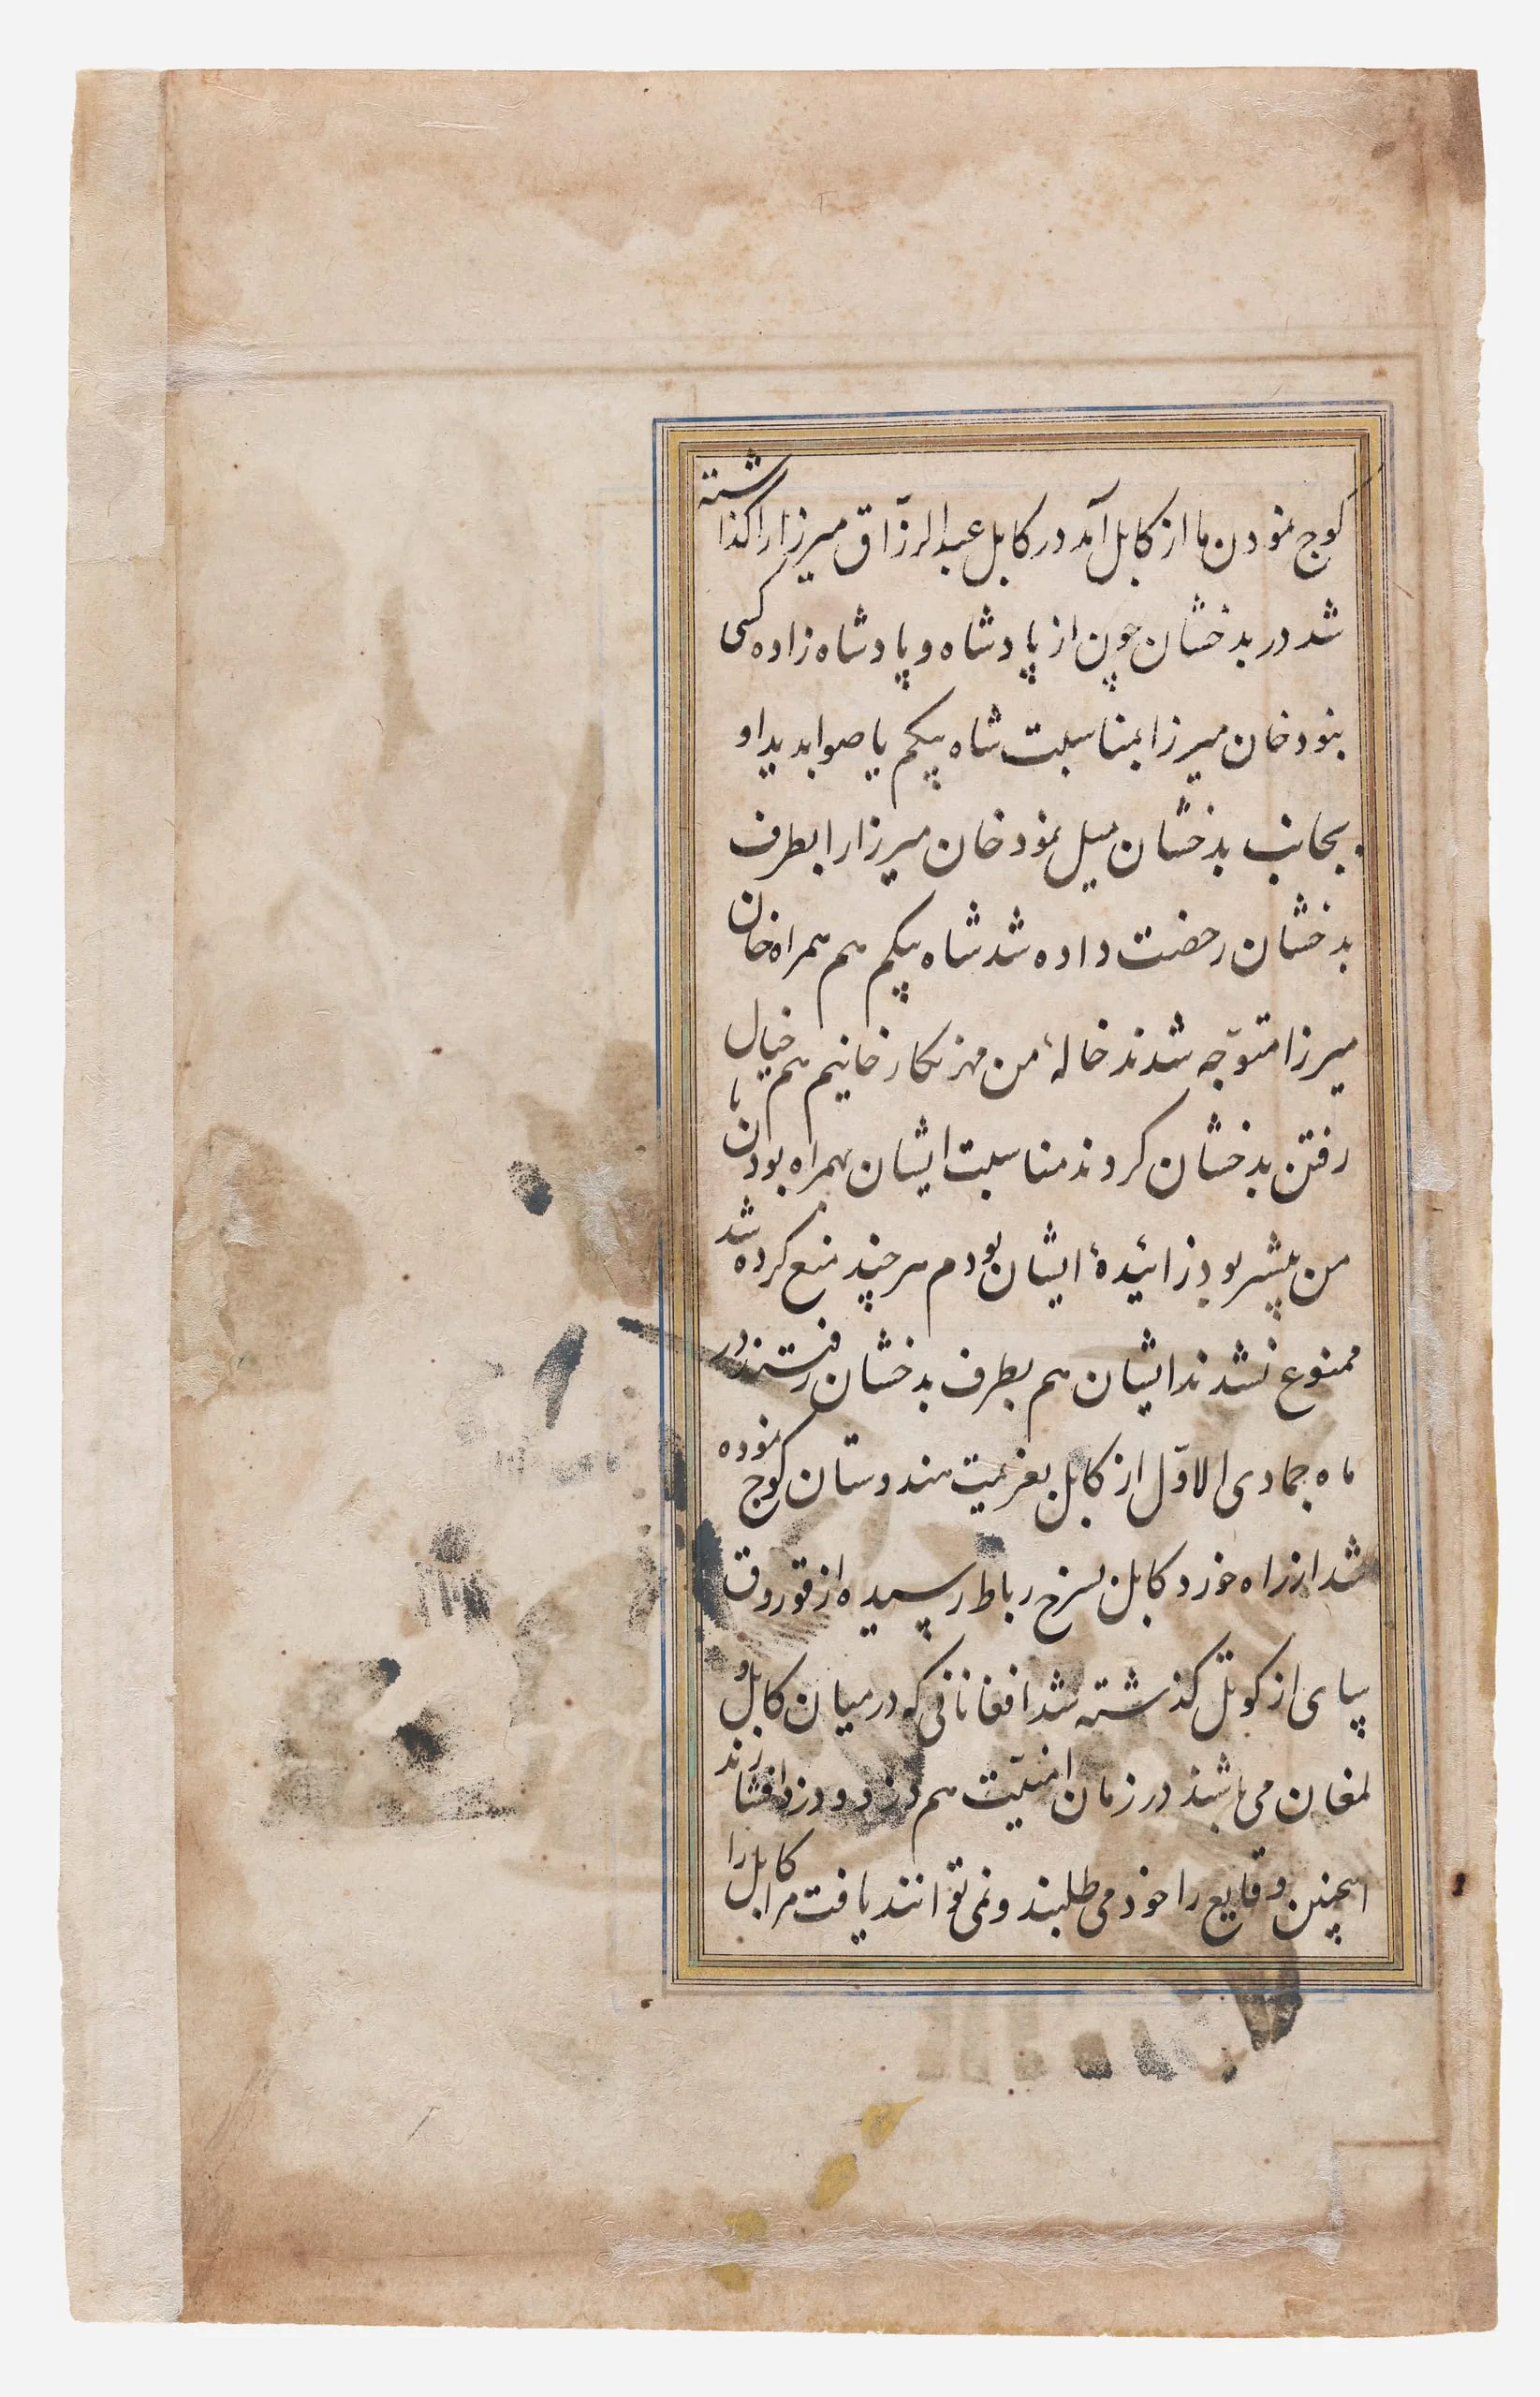 کوچ نمودن ما از کابل آمد در کابل عبدالرزّاق میرزا را کذاشته
شد در بدخشان چون از پادشاه و پادشاه زاده کسی
نبود خان میرزا بمناسبت شاه بیکم یا صوابدید او
بجانب بدخشان میل نمود خان میرزا را بطرف
بدخشان رخصت داده شد شاه بیکم هم همراه خان
میرزا متوجّه شدند خالهٔ من مهر نکار خانیم هم خیال
رفتن بدخشان کردند مناسبت ایشان همراه بودن با
من بیشتر بود زائیدهٔ ایشان بودم هر چند منع کرده شد
ممنوع نشدند ایشان هم بطرف بدخشان رفتند در
ماه جمادی الاوّل از کابل بعزیمت هندوستان کوچ نموده
شد از راه خورد کابل بسرخ رباط رسیده از قوروق
سای از کوتل کذشته شد افغانانی که در میان کابل و
لمغان می باشند در زمان امنیّت هم دزد و دزد افشارند
اینچنین وقایع را خود می طلبند و نمی توانند یافت مر کابل را